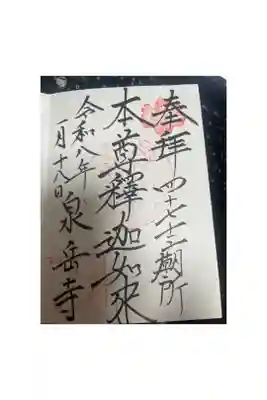 奉拝 四十七士廟所
本尊釋迦如來
令和八年
一月十八日
泉岳寺